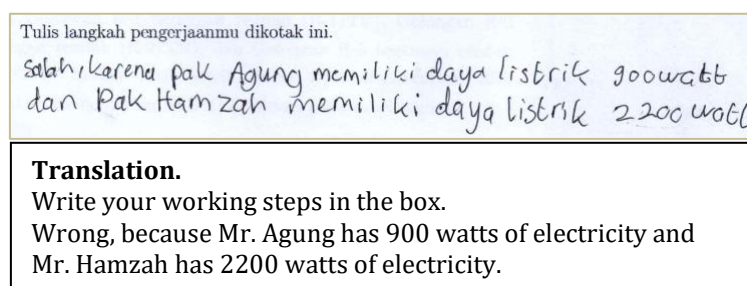 Tulis langkah pengerjaanmu dikotak ini.
Salah, karena pak Agung memiliki daya listrik 900watt
dan Pak Hamzah memiliki daya listrik 2200 watt
Translation.
Write your working steps in the box.
Wrong, because Mr. Agung has 900 watts of electricity and
Mr. Hamzah has 2200 watts of electricity.